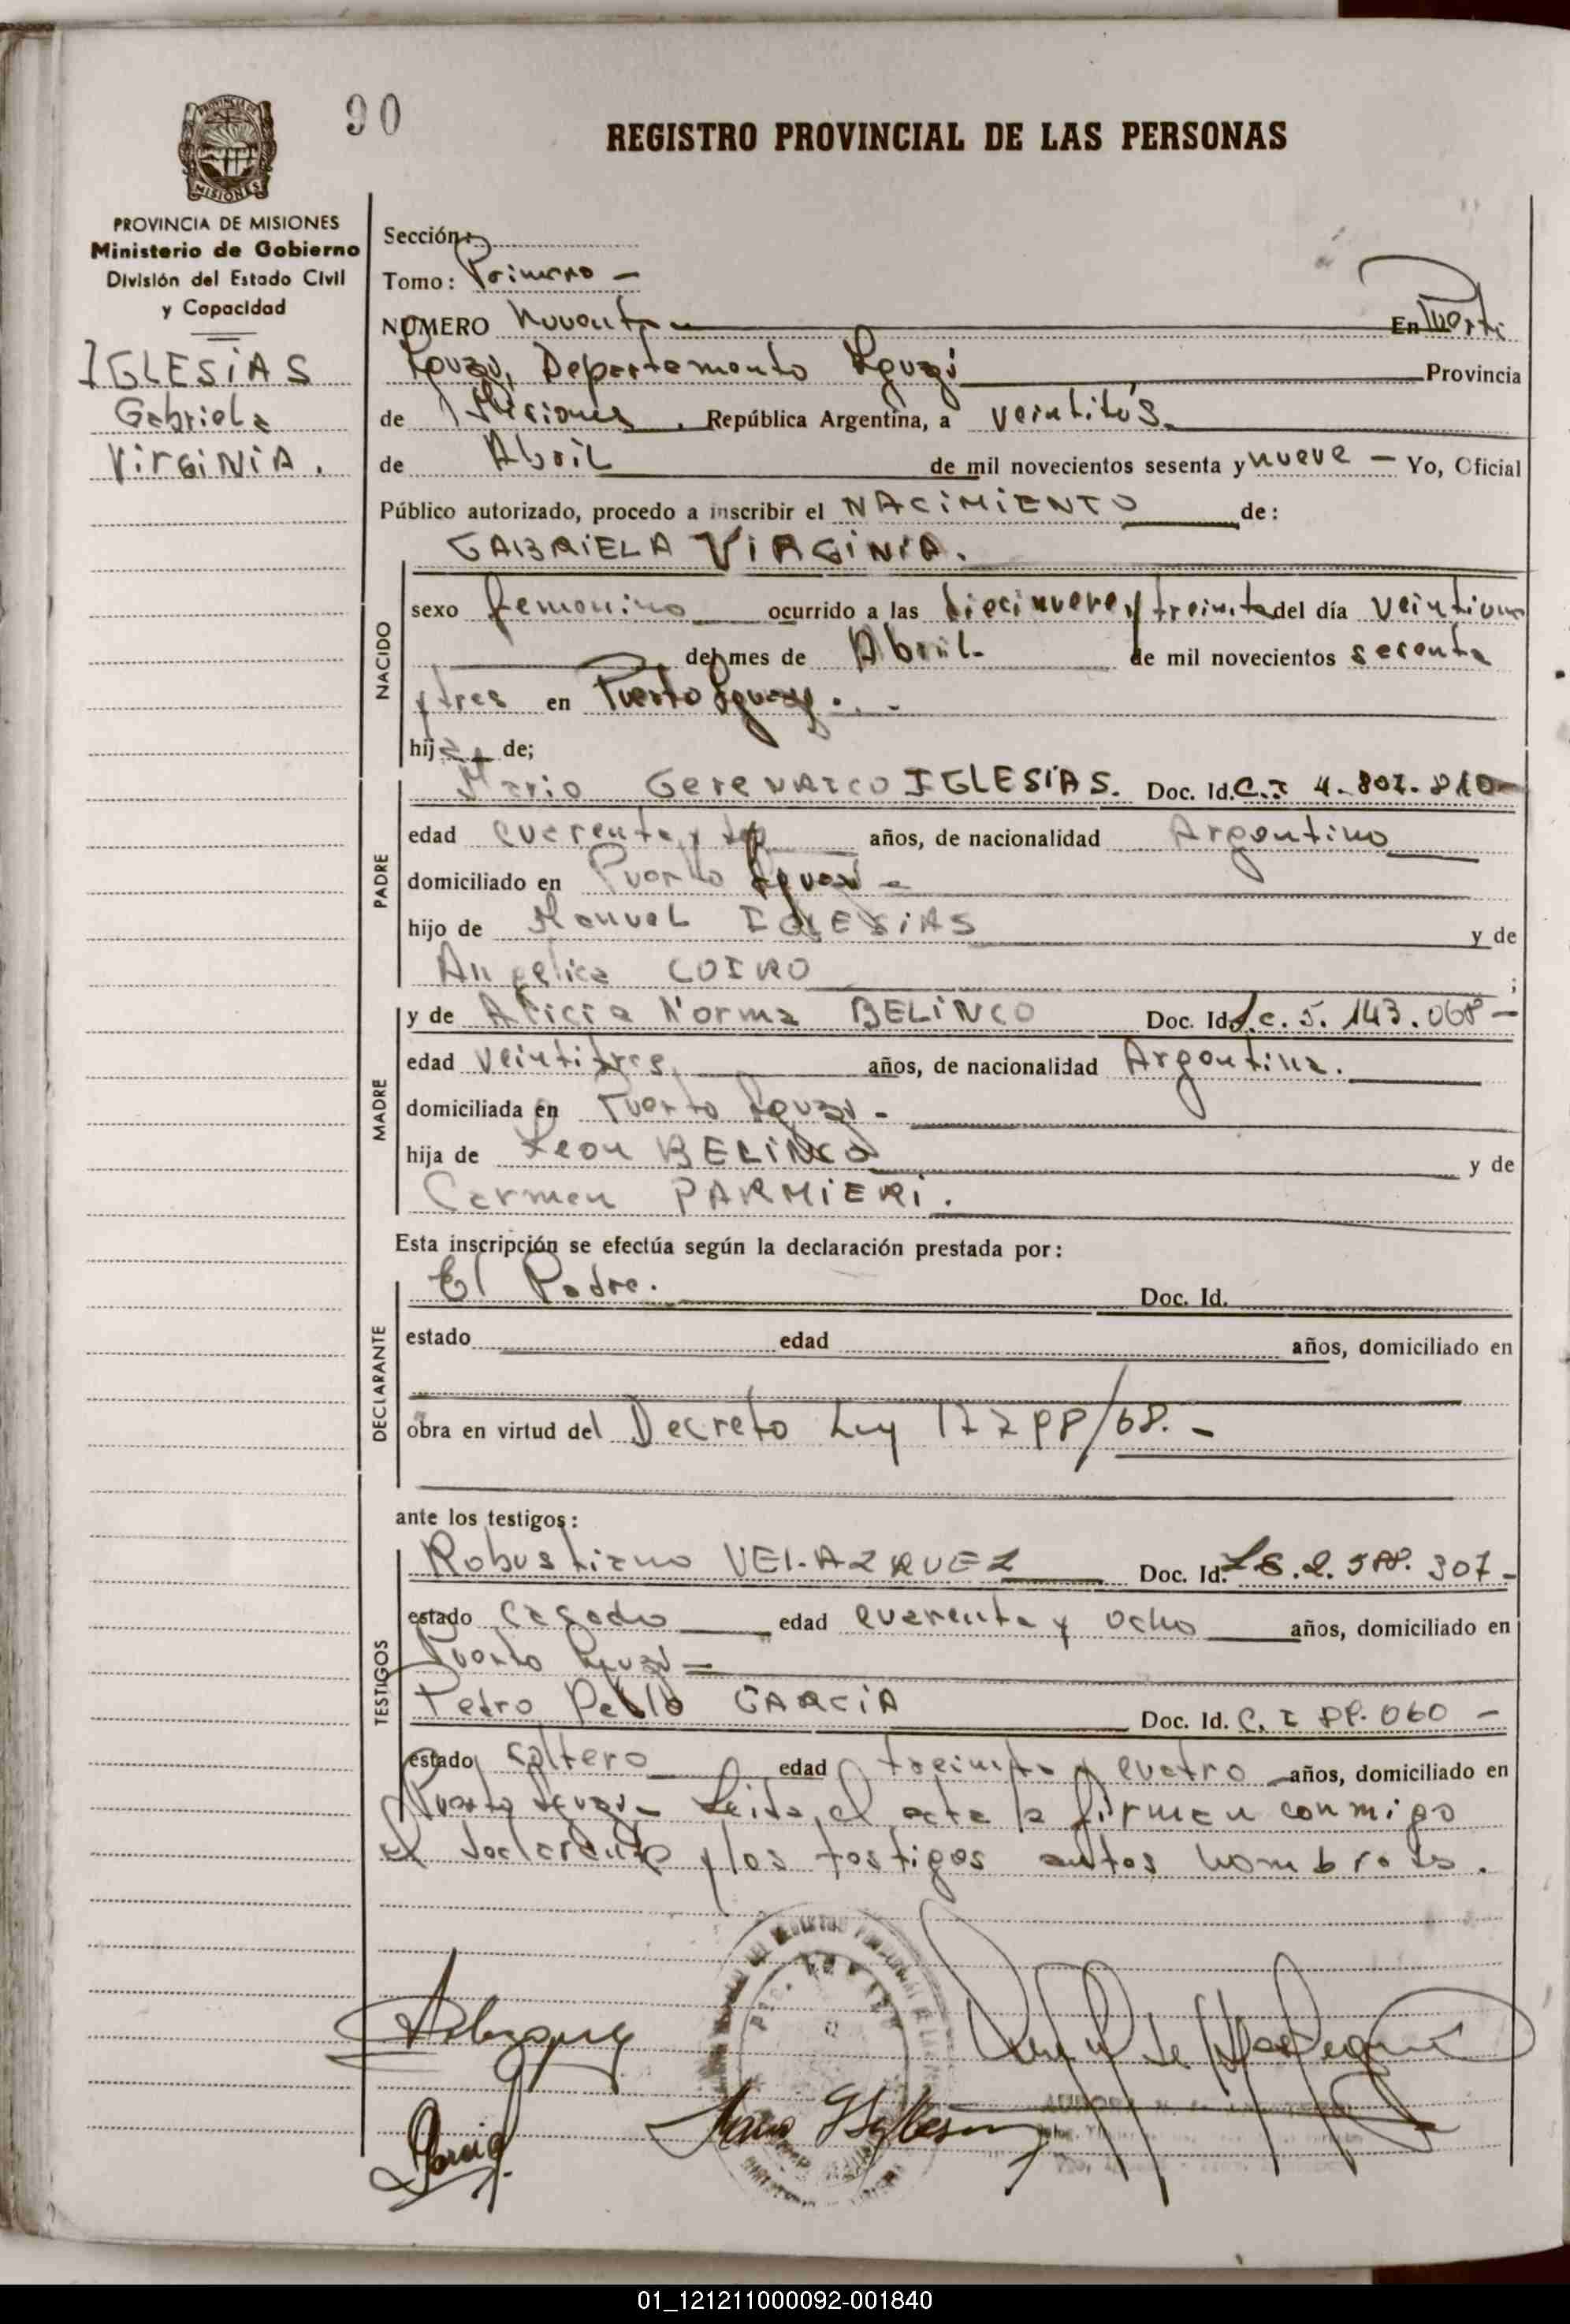 90
REGISTRO PROVINCIAL DE LAS PERSONAS
PROVINCIA DE MISIONES
Ministerio de Gobierno
División del Estado Civil
y Capacidad
IGLESIAS
Gabriela
VIRGINIA.
Sección:
Tomo: Primero -
NUMERO Noventa En Puerto
Iguazú, Departamento Iguazú Provincia
de Misiones, República Argentina, a veintidós
de Abril de mil novecientos sesenta y nueve - Yo, Oficial
Público autorizado, procedo a inscribir el NACIMIENTO de:
GABRIELA VIRGINIA.
NACIDO
sexo femenino ocurrido a las diecinueve y treinta del día veintiuno
del mes de Abril. de mil novecientos sesenta
y tres en Puerto Iguazú.-
hija de;
PADRE
Mario IGLESIAS. Doc. Id. C.I 4.807.810-
edad cuarenta y años, de nacionalidad Argentino
domiciliado en Puerto Iguazú -
hijo de Manuel IGLESIAS y de
Angelica COIRO ;
MADRE
y de Alicia Norma BELINCO Doc. Id. L.C. 5.143.068-
edad veintitres años, de nacionalidad Argentina.
domiciliada en Puerto Iguazú -
hija de Leon BELINCO y de
Carmen PARMIERI.
Esta inscripción se efectúa según la declaración prestada por:
DECLARANTE
El Padre. Doc. Id.
estado edad años, domiciliado en
obra en virtud del Decreto Ley /68.-
ante los testigos:
TESTIGOS
Robustiano VELAZQUEZ Doc. Id. 307-
estado casado edad cuarenta y ocho años, domiciliado en
Puerto Iguazú =
Pedro Pablo GARCIA Doc. Id. C.I 88.060 -
estado soltero edad treinta y cuatro años, domiciliado en
Puerto Iguazú - Leida el acta la firman conmigo
el declarante y los testigos antes nombrados.
Mario Iglesias
01_121211000092-001840